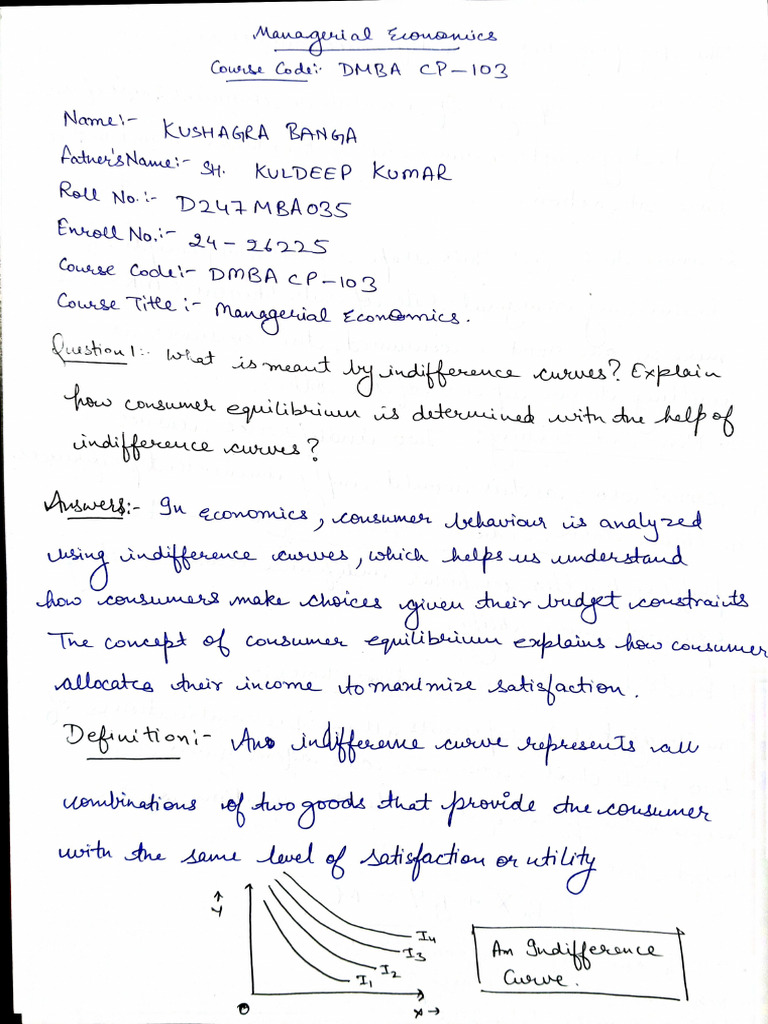 Managerial Economics
Course Code:- DMBA CP-103
Name:- KUSHAGRA BANGA
Father's Name:- SH. KULDEEP KUMAR
Roll No.:- D247MBA035
Enroll No.:- 24-26225
Course Code:- DMBA CP-103
Course Title:- Managerial Economics.
Question 1:- What is meant by indifference curves? Explain
how consumer equilibrium is determined with the help of
indifference curves?
Answers:- In economics, consumer behaviour is analyzed
using indifference curves, which helps us understand
how consumers make choices given their budget constraints
The concept of consumer equilibrium explains how consumer
allocates their income to maximize satisfaction.
Definition:- An indifference curve represents all
combinations of two goods that provide the consumer
with the same level of satisfaction or utility
↑
Y
I4
I3
I2
I1
An Indifference
Curve.
O
X→